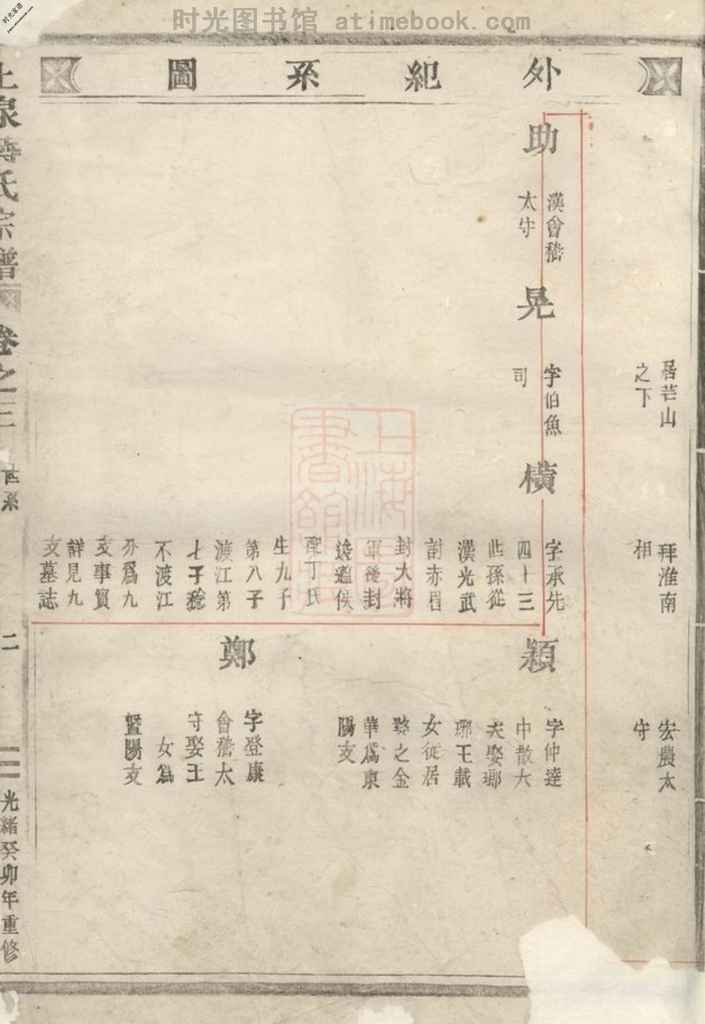 时光图书馆 atimebook.com
外紀系圖
居芒山
之下
拜淮南
相
宏農太
守
助
漢會稽
太守
晃
字伯魚
司
橫
字承先
四十三
世孫從
漢光武
討赤眉
封大將
軍後封
逡遒侯
配丁氏
生九子
第八子
渡江第
七子稔
不渡江
分爲九
支事實
詳見九
支墓誌
穎
字仲達
中散大
夫娶瑯
琊王載
女徙居
婺之金
華爲東
陽支
鄭
字登康
會稽太
守娶王
女爲
暨陽支
氏宗譜
卷之三
世系
二
光緒癸卯年重修
上海
書館